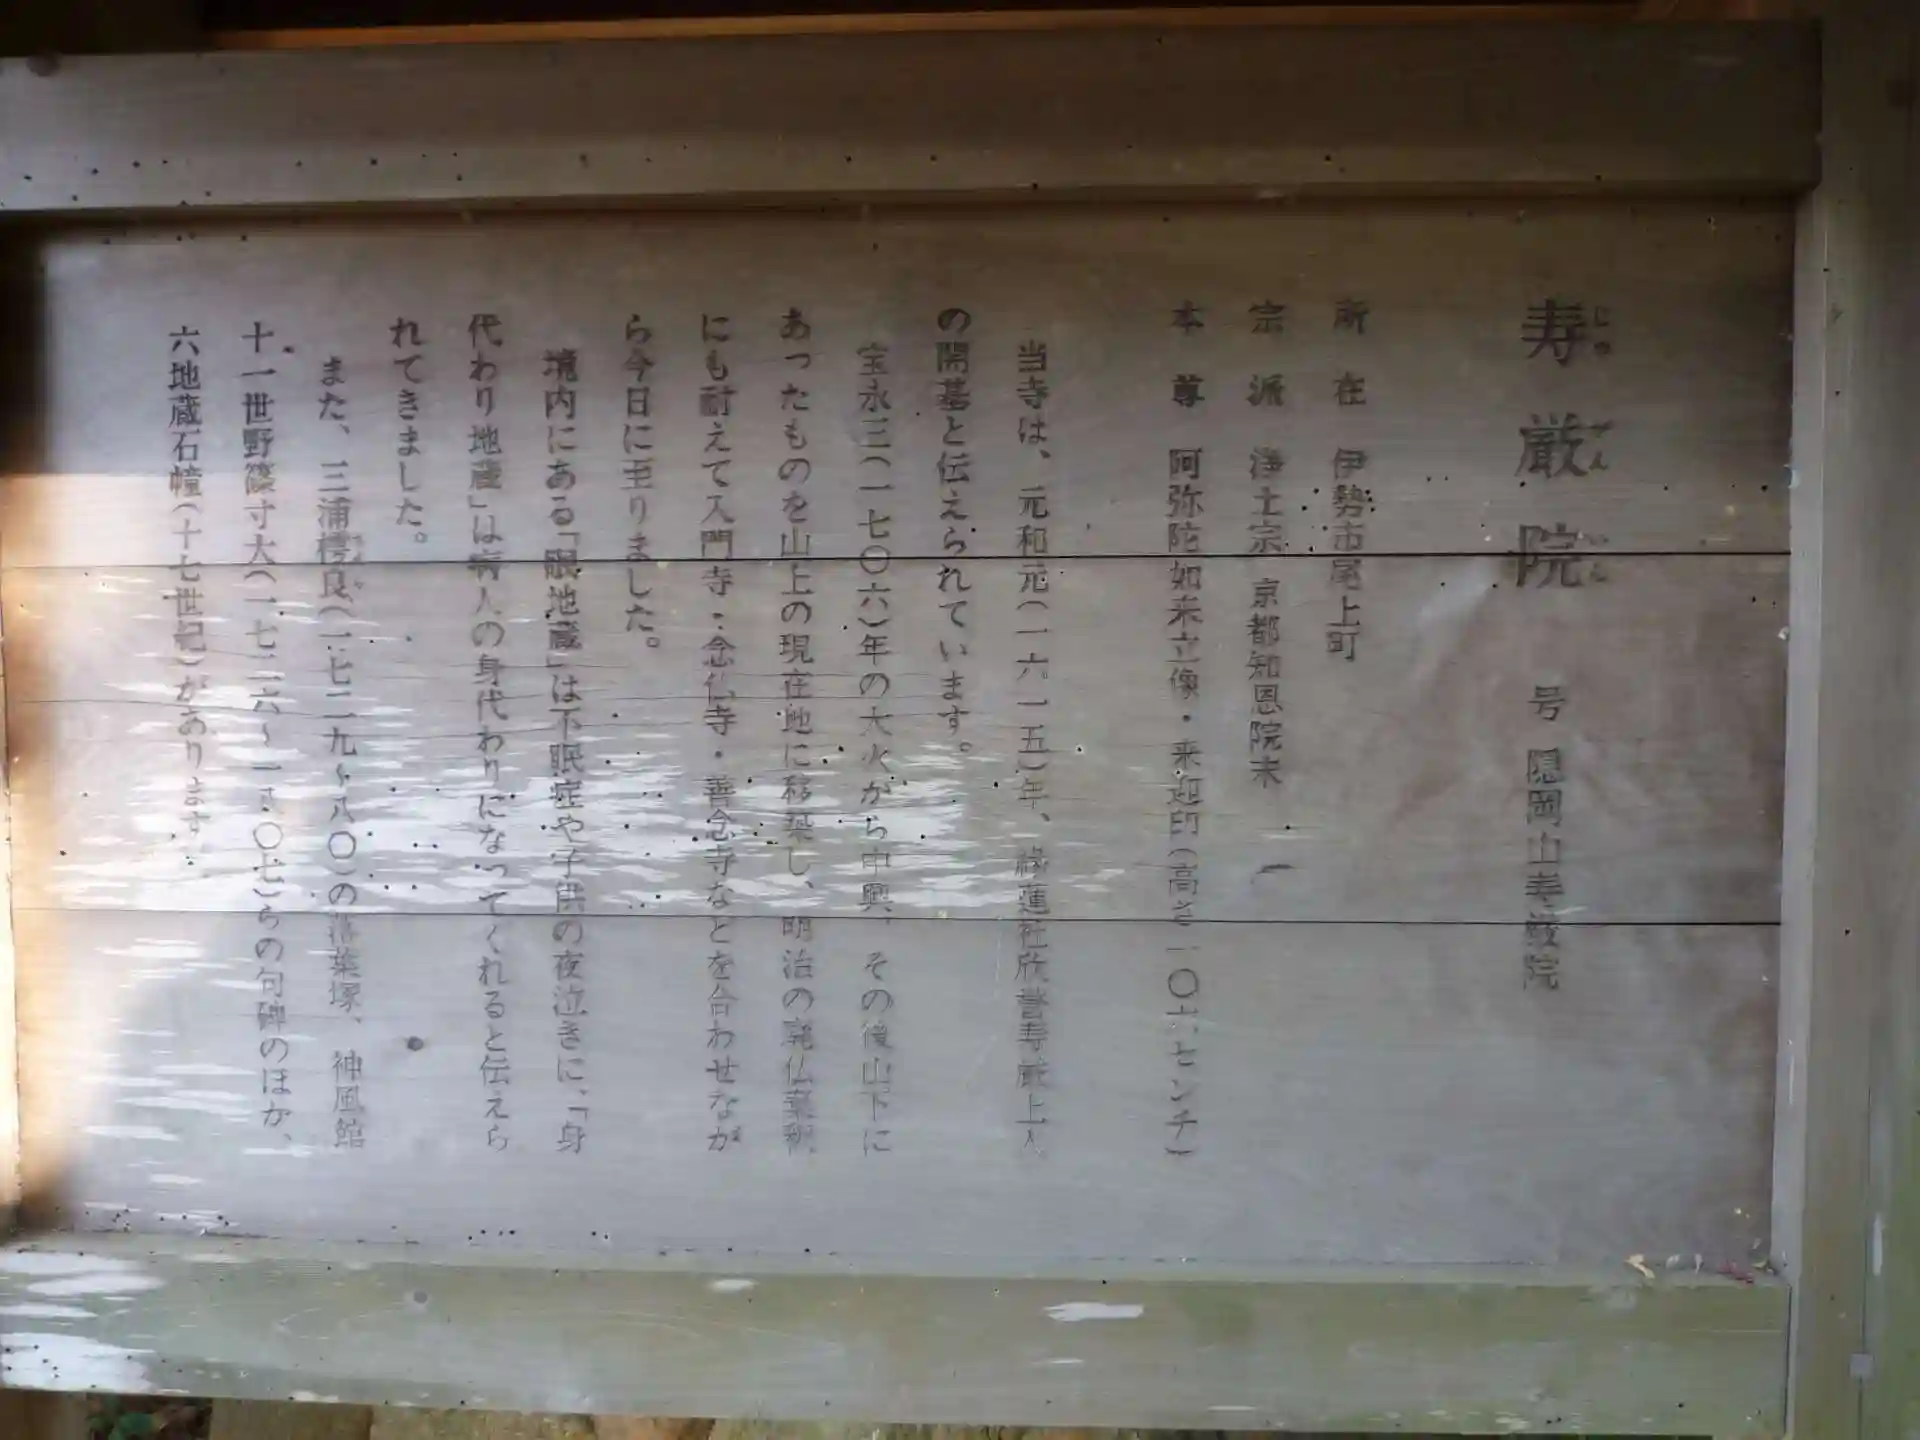 寿巌院 号 隠岡山寿巌院
所在 伊勢市尾上町
宗派 浄土宗 京都知恩院末
本尊 阿弥陀如来立像・来迎印(高さ一〇六センチ)
当寺は、元和元(一六一五)年、縁蓮社欣誉寿巌上人
の開基と伝えられています。
宝永三(一七〇六)年の大火から中興、その後山下に
あったものを山上の現在地に移築し、明治の廃仏棄釈
にも耐えて入門寺・念仏寺・善念寺などを合わせなが
ら今日に至りました。
境内にある「眠地蔵」は不眠症や子供の夜泣きに、「身
代わり地蔵」は病人の身代わりになってくれると伝えら
れてきました。
また、三浦樗良(一七二九〜八〇)の落葉塚、神風館
十一世野篠寸大(一七二六〜一八〇七)らの句碑のほか、
六地蔵石幢(十七世紀)があります。